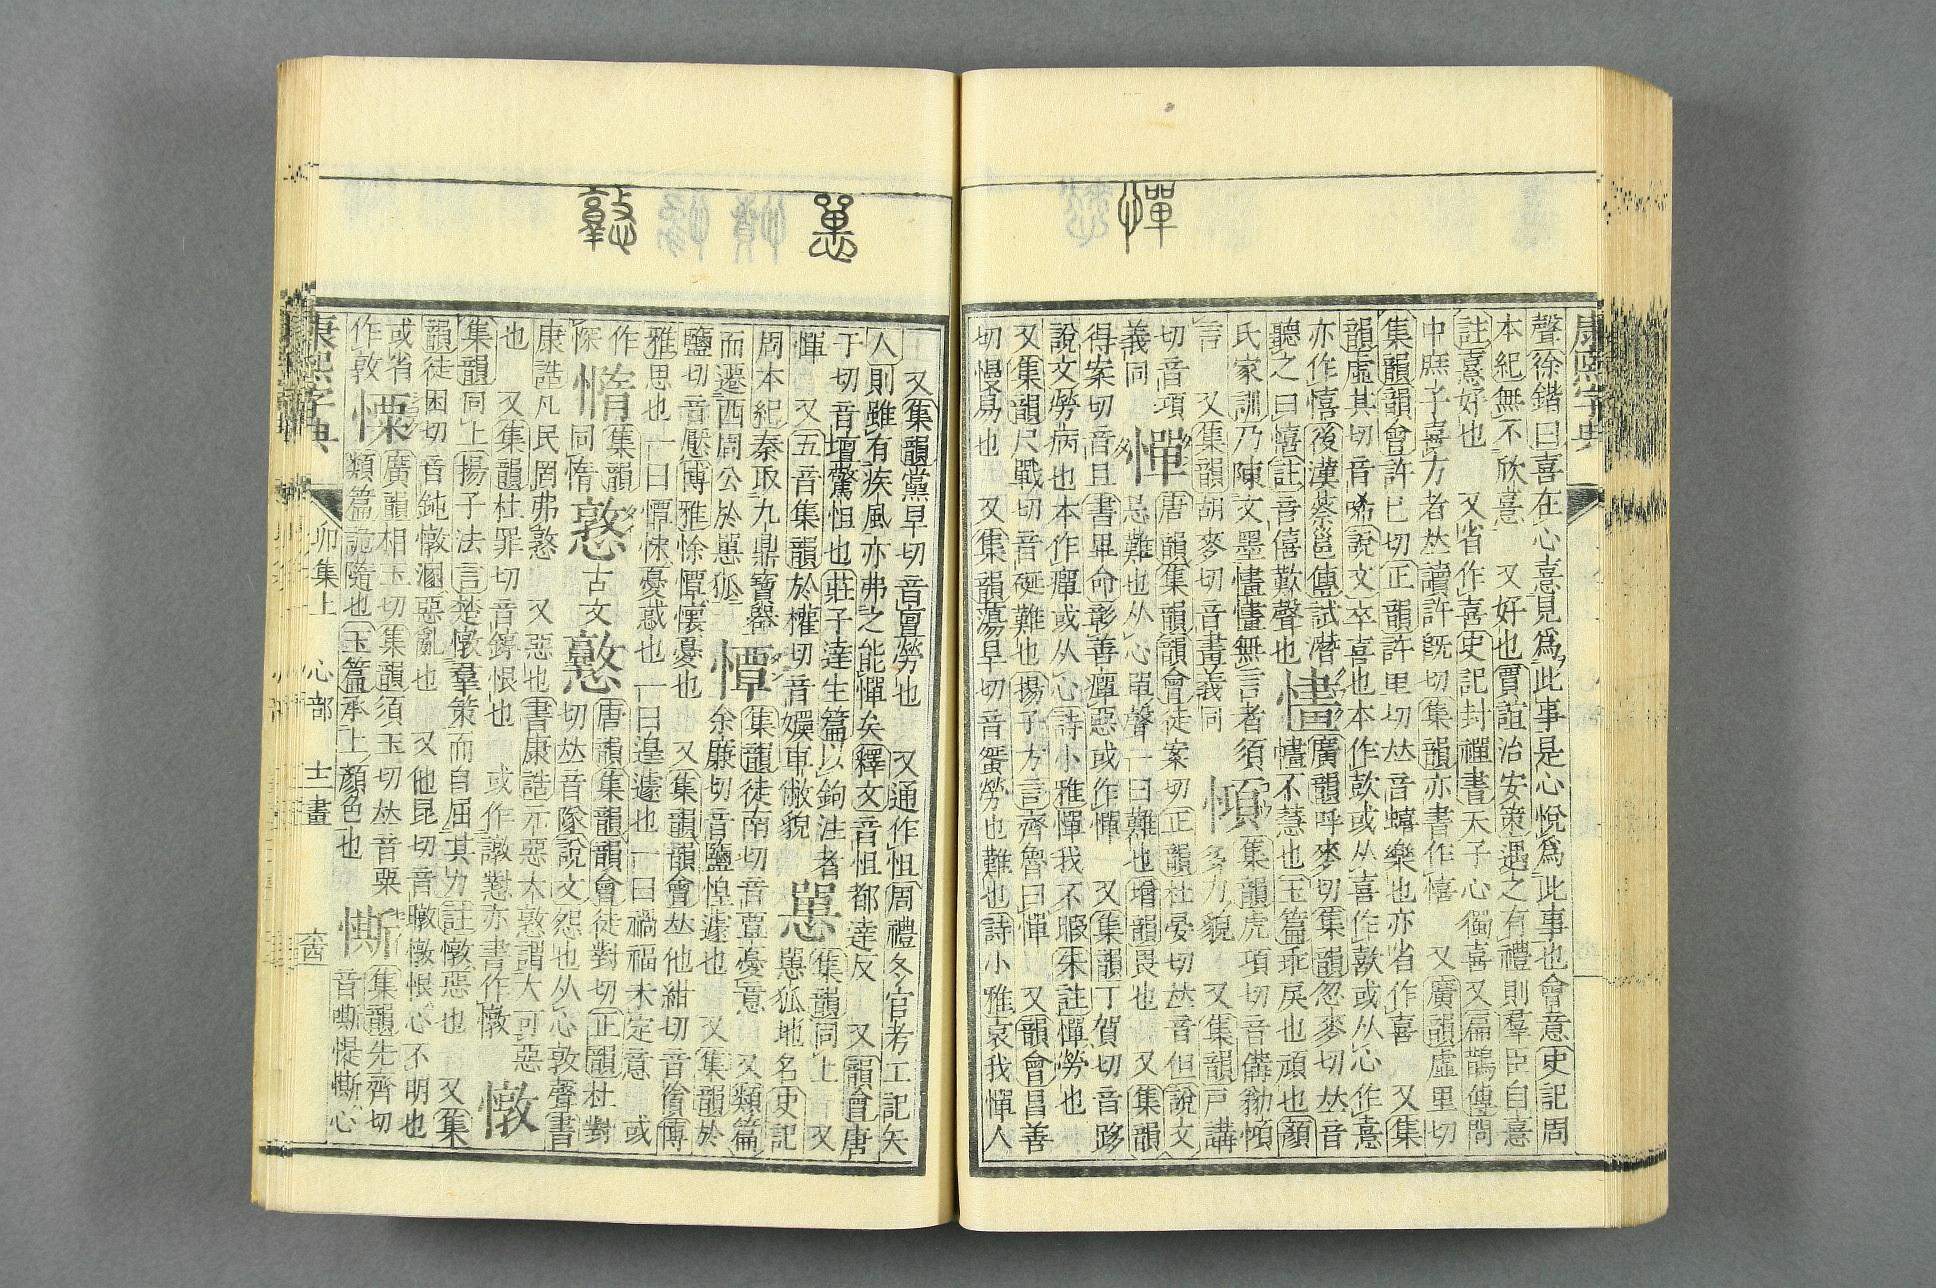 憚
聲徐鍇曰喜在心憙見爲此事是心悅爲此事也會意史記周
本紀無不欣憙　又好也賈誼治安策遇之有禮則羣臣自憙
註憙好也　又省作喜史記封禪書天子心獨喜又扁鵲傳問
中庶子喜方者𠀤讀許旣切集韻亦書作憘　又廣韻虛里切
集韻韻會許已切正韻許里切𠀤音蟢樂也亦省作喜　又集
韻虛其切音唏說文卒喜也本作歖或从喜作歖或从心作憙
亦作憘後漢蔡邕傳試潛
聽之曰憘註音僖歎聲也
𢢁廣韻呼麥切集韻忽麥切𠀤音
𢢁不慧也玉篇乖戾也頑也顏
氏家訓乃陳文墨𢢁𢢁無言者須
言　又集韻胡麥切音畫義同
集韻虎項切音構㔢
多力貌　又集韻戸講
切音項
義同
憚唐韻集韻韻會徒案切正韻杜晏切𠀤音但說文
忌難也从心單聲一曰難也增韻畏也　又集韻
得案切音旦書畢命彰善癉惡或作憚　又集韻丁賀切音跢
說文勞病也本作癉或从心詩小雅憚我不暇朱註憚勞也
又集韻尺戰切音硟難也揚子方言齊魯曰憚　又韻會昌善
切慢易也　又集韻蕩旱切音蜑勞也難也詩小雅哀我憚人
康熙字典
罳
憝
又集韻黨旱切音亶勞也　又通作怛周禮冬官考工記矢
人則雖有疾風亦弗之能憚矣釋文音怛都達反　又韻會唐
于切音壇驚怛也莊子達生篇以鉤注者
憚　又五音集韻於權切音嬽車敝貌
集韻同上　又
𢠵狐地名史記
周本紀秦取九鼎寶器
而遷西周公於𢠵狐
憛集韻徒南切音覃憂意　又類篇
余廉切音鹽惶遽也　又集韻於
鹽切音懕博雅悇憛懷憂也　又集韻韻會𠀤他紺切音㑲博
雅思也一曰憛悇憂惑也一曰遑遽也一曰禍福未定意　或
作
㥽
憜集韻
同惰
憝古文𢤝唐韻集韻韻會徒對切正韻杜對
切𠀤音隊說文怨也从心敦聲書
康誥凡民罔弗憝　又惡也書康誥元惡大憝謂大可惡
也　又集韻杜罪切音錞恨也　或作譈懟亦書作憞
憞
集韻同上揚子法言楚憞羣策而自屈其力註憞惡也　又集
韻徒困切音鈍憞溷惡亂也　又他昆切音暾憞恨心不明也
或省
作敦
憟廣韻相玉切集韻須玉切𠀤音粟
類篇詭隨也玉篇承上顏色也
㒋集韻先齊切
音嘶惿㒋心
康熙字典　卯集上　心部　士畫